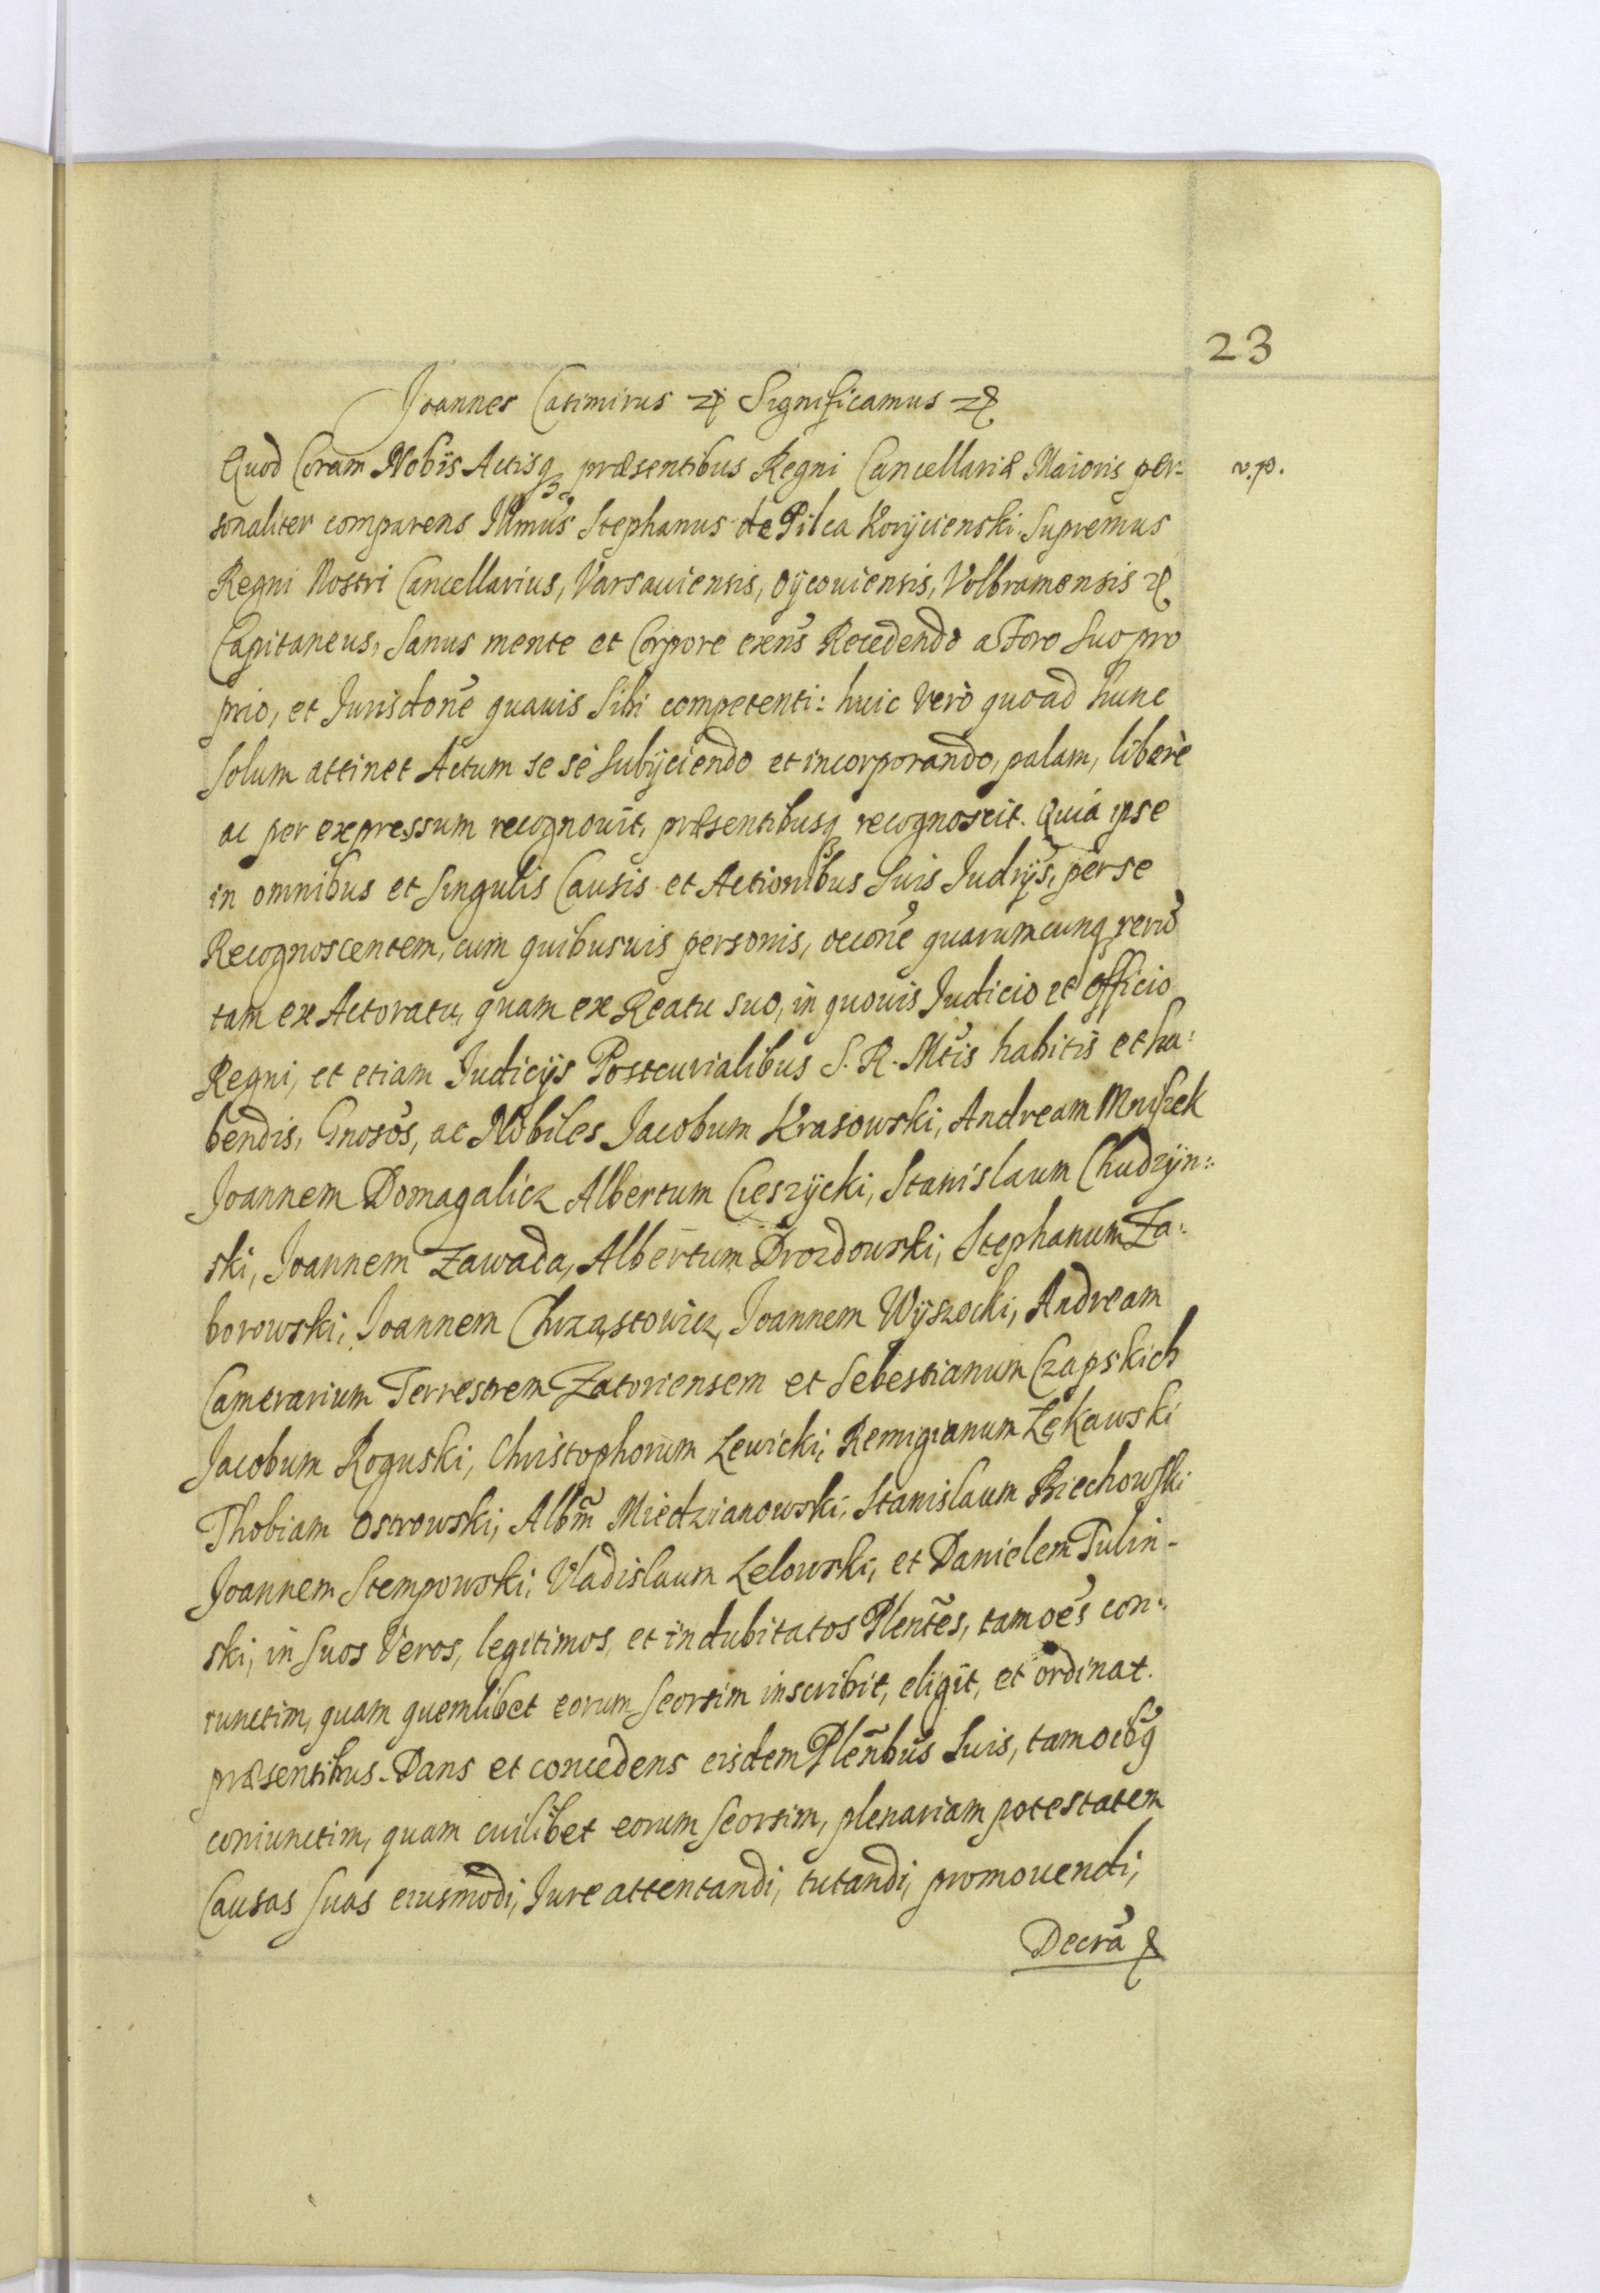 23
Joannes Casimirus etc Significamus etc
Quod Coram Nobis Actisq præsentibus Regni Cancellariæ Maioris per-
v.p.
sonaliter comparens Illmus Stephanus de Pilca Korycienski Supremus
Regni Nostri Cancellarius, Varsauiensis, Oycouiensis, Volbramensis etc
Capitaneus, Sanus mente et Corpore exens Recedendo a Foro Suo pro
prio, et Jurisdone quauis Sibi competenti: huic verò quoad hunc
Solum attinet Actum se se Subijciendo et incorporando, palam, liberè
ac per expressum recognouit, præsentibusq recognoscit. Quia ipse
in omnibus et Singulis Causis et Actionibus Suis Judrijs, per se
Recognoscentem, cum quibusuis personis, occone quarumcunq rerū
tam ex Actoratu, quam ex Reatu suo, in quouis Judicio et officio
Regni, et etiam Judicijs Postcurialibus S. R. Mtis habitis et ha:
bendis, Gnosos, ac Nobiles Jacobum Krasowski, Andream Mniszek
Joannem Domagalicz Albertum Cieszycki, Stanislaum Chudzyn:
ski, Joannem Zawada, Albertum Drozdowski, Stephanum Za:
borowski, Joannem Chrząstowicz, Joannem Wyszocki, Andream
Camerarium Terrestrem Zatoriensem et Sebestianum Czapskich
Jacobum Roguski, Christophorum Lewicki, Remigianum Zękawski
Thobiam Ostrowski, Albm̃ Miedzianowski, Stanislaum Biechowski
Joannem Stempowski, Vladislaum Lelowski, et Danielem Tulin-
ski, in Suos Veros, legitimos, et indubitatos Plentes, tam oes con:
iunctim, quam quemlibet eorum Seorsim inscribit, eligit, et ordinat
præsentibus. Dans et concedens eisdem Plenbus Suis, tam oibq
coniunctim, quam cuilibet eorum Seorsim, plenariam potestatem
Causas Suas eiusmodi, Jure attentandi, tutandi, promouendi,
Decra &